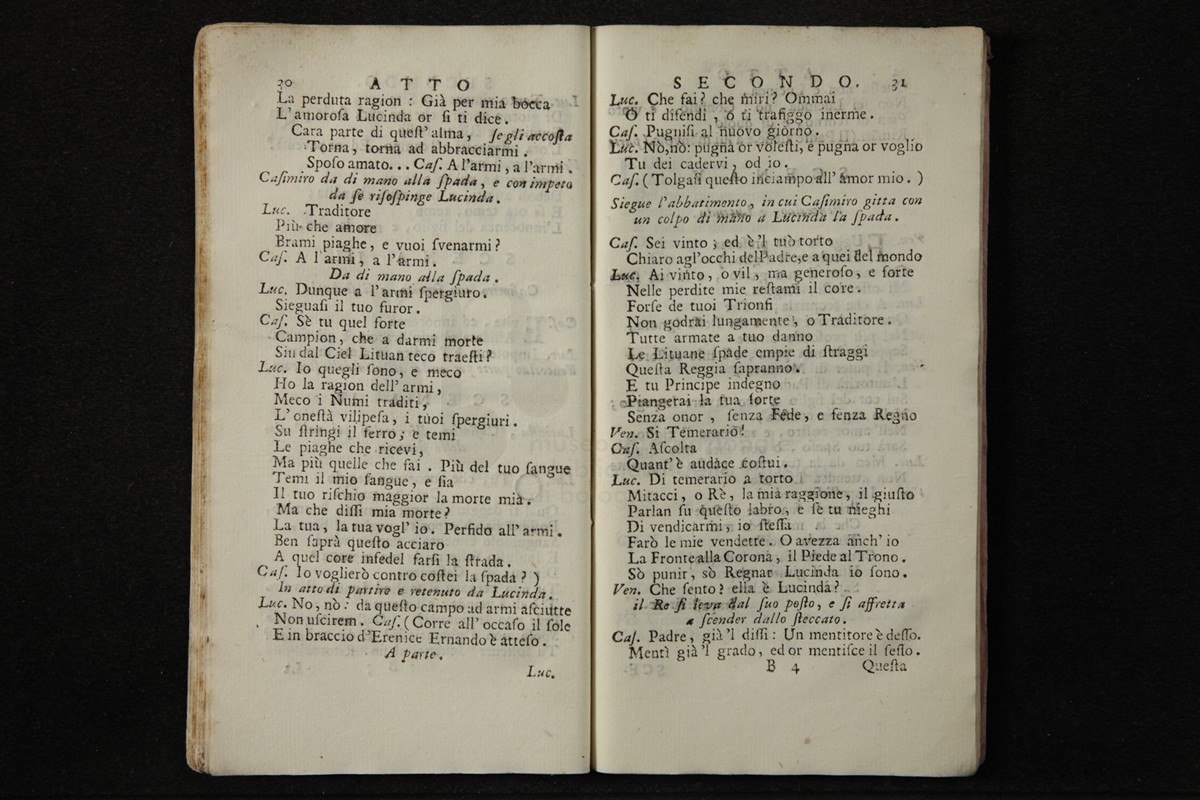 30 ATTO
La perduta ragion : Già per mia bocca
L'amoroſa Lucinda or ſi ti dice.
Cara parte di queſt'alma, ſe gli accoſta
Torna, torna ad abbracciarmi.
Spoſo amato... Caſ. A l'armi, a l'armi.
Caſimiro da di mano alla ſpada, e con impeto
da ſe riſoſpinge Lucinda.
Luc. Traditore
Più che amore
Brami piaghe, e vuoi ſvenarmi?
Caſ. A l'armi, a l'armi.
Da di mano alla ſpada.
Luc. Dunque a l'armi ſpergiuro.
Sieguaſi il tuo furor.
Caſ. Sè tu quel forte
Campion, che a darmi morte
Sin dal Ciel Lituan teco traeſti?
Luc. Io quegli ſono, e meco
Ho la ragion dell'armi,
Meco i Numi traditi,
L'oneſtà vilipeſa, i tuoi ſpergiuri.
Su ſtringi il ferro; e temi
Le piaghe che ricevi,
Ma più quelle che fai. Più del tuo ſangue
Temi il mio ſangue, e ſia
Il tuo riſchio maggior la morte mia.
Ma che diſſi mia morte?
La tua, la tua vogl'io. Perfido all'armi.
Ben ſaprà queſto acciaro
A quel core infedel farſi la ſtrada.
Caſ. Io voglierò contro coſtei la ſpada? )
In atto di partire e retenuto da Lucinda.
Luc. No, nò: da queſto campo ad armi aſciutte
Non uſcirem. Caſ. (Corre all'occaſo il ſole
E in braccio d'Erenice Ernando è atteſo.
A parte.
Luc.
SECONDO. 31
Luc. Che fai? che miri? Ommai
O ti difendi, ò ti trafiggo inerme.
Caſ. Pugniſi al nuovo giorno.
Luc. Nò, nò: pugna or voleſti, e pugna or voglio
Tu dei cadervi, od io.
Caſ. (Tolgaſi queſto inciampo all'amor mio.)
Siegue l'abbatimento, in cui Caſimiro gitta con
un colpo di mano a Lucinda la ſpada.
Caſ. Sei vinto; ed è'l tuò torto
Chiaro agl'occhi del Padre, e a quei del mondo
Luc. Ai vinto, ò vil, ma generoſo, e forte
Nelle perdite mie reſtami il core.
Forſe de tuoi Trionfi
Non godrai lungamente, o Traditore.
Tutte armate a tuo danno
Le Lituane ſpade empie di ſtraggi
Queſta Reggia ſapranno.
E tu Principe indegno
Piangerai la tua ſorte
Senza onor, ſenza Fede, e ſenza Regno
Ven. Si Temerario!
Caſ. Aſcolta
Quant'è audace coſtui.
Luc. Di temerario a torto
Mitacci, o Rè, la mia raggione, il giuſto
Parlan ſu queſto labro, e ſe tu nieghi
Di vendicarmi, io ſteſſa
Farò le mie vendette. O avezza anch'io
La Fronte alla Corona, il Piede al Trono.
Sò punir, sò Regnar Lucinda io ſono.
Ven. Che ſento? ella è Lucinda?
il Re ſi leva dal ſuo poſto, e ſi affretta
a ſcender dallo ſteccato.
Caſ. Padre, già'l diſſi: Un mentitore è deſſo.
Mentì già'l grado, ed or mentiſce il ſeſſo.
B 4 Queſta